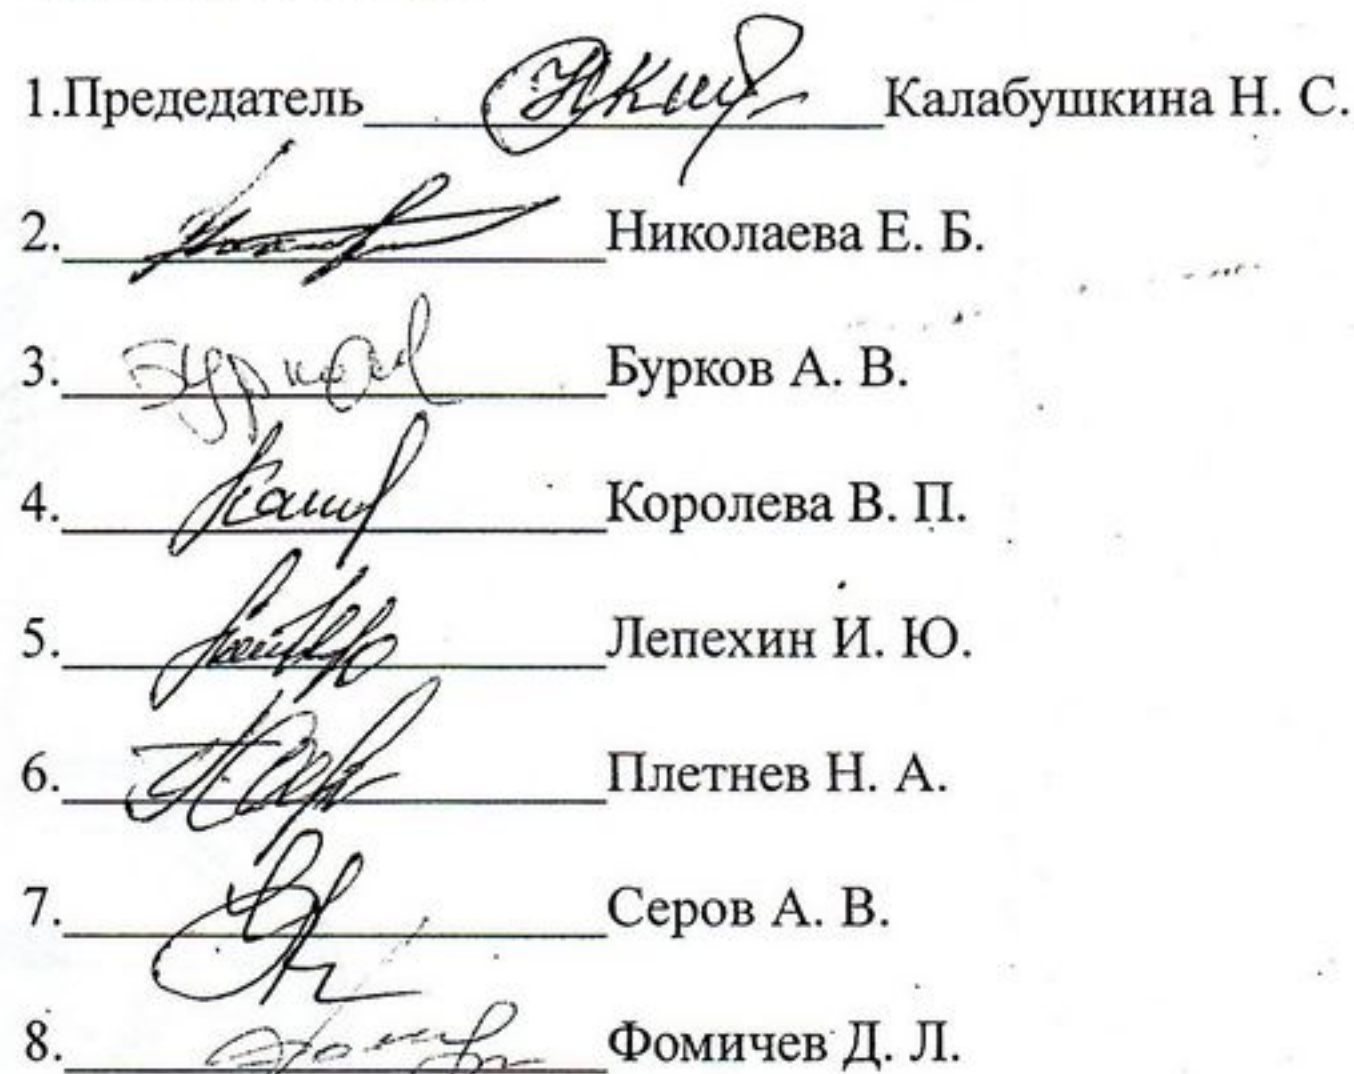 1.Предедатель Калабушкина Н. С.
2. Николаева Е. Б.
3. Бурков А. В.
4. Королева В. П.
5. Лепехин И. Ю.
6. Плетнев Н. А.
7. Серов А. В.
8. Фомичев Д. Л.